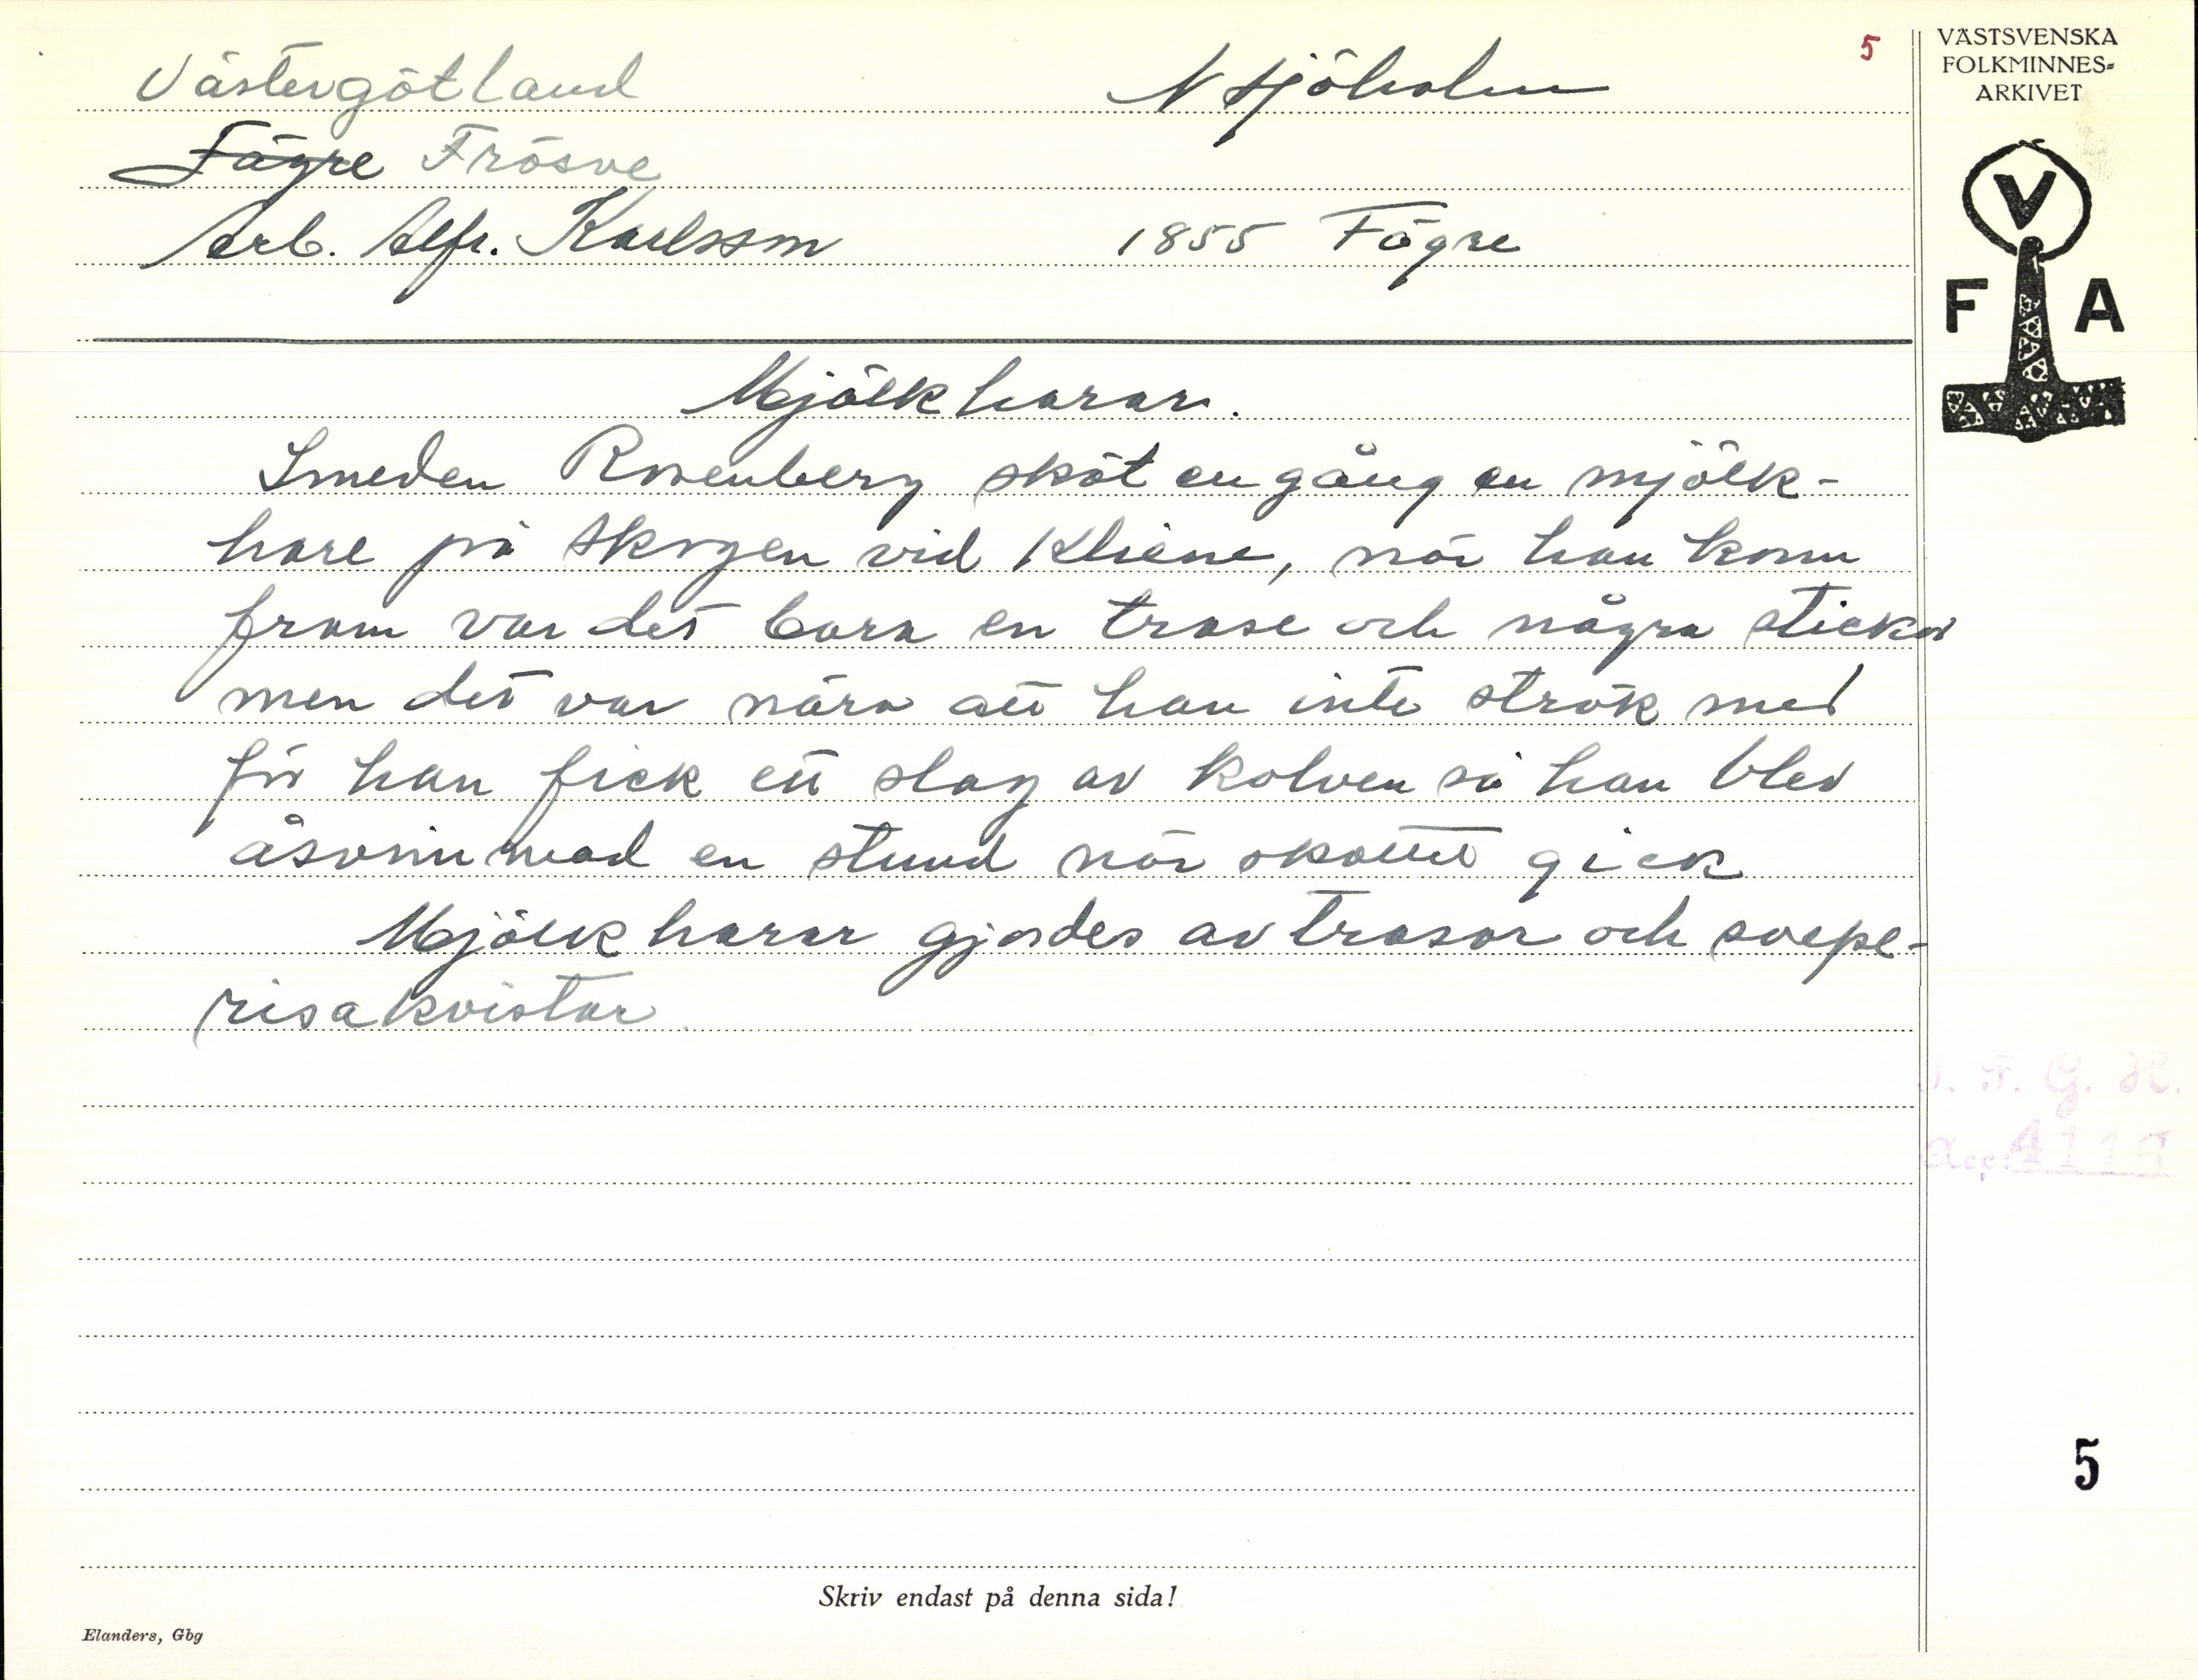 5
VÄSTSVENSKA
FOLKMINNES-
ARKIVET
V
F A
Västergötland
Fägre Frösve
Arb. Alfr. Karlsson 1855 Fägre
Mjölkharar.
Smeden Rosenberg sköt en gång en mjölk-
hare på skogen vid Kliene, när han kom
fram var det bara en trase och några stickor
men det var nära att han inte strök med
för han fick ett slag av kolven så han blev
åsvimmad en stund när skottet gick
Mjölkharar gjordes av trasor och svepe-
risakvistar
I. F. G. H.
Acc:
5
Skriv endast på denna sida!
Elanders, Gbg